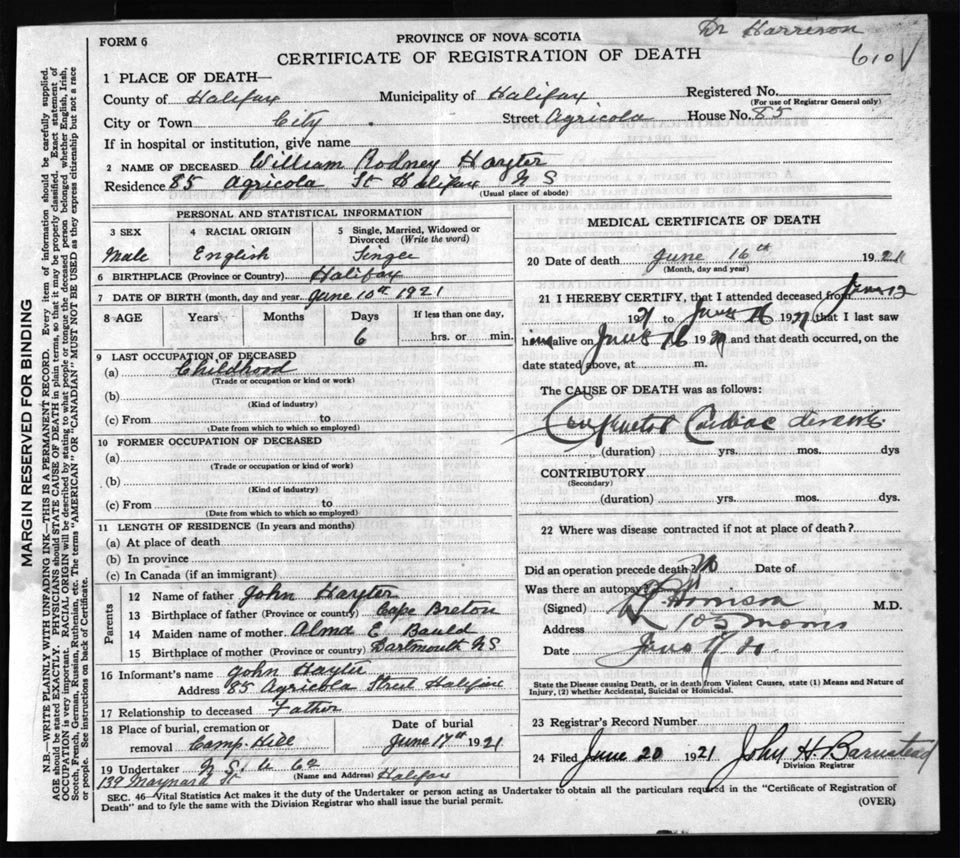 Dr Harrison
610
FORM 6
PROVINCE OF NOVA SCOTIA
CERTIFICATE OF REGISTRATION OF DEATH
1 PLACE OF DEATH—
County of Halifax Municipality of Halifax Registered No.
(For use of Registrar General only)
City or Town City Street Agricola House No. 85
If in hospital or institution, give name
2 NAME OF DECEASED William Rodney Hayter
Residence 85 Agricola St Halifax N S
(Usual place of abode)
PERSONAL AND STATISTICAL INFORMATION
3 SEX 4 RACIAL ORIGIN 5 Single, Married, Widowed or Divorced (Write the word)
Male English Singel
6 BIRTHPLACE (Province or Country) Halifax
7 DATE OF BIRTH (month, day and year June 10th 1921
8 AGE Years Months Days If less than one day,
6 hrs. or min.
9 LAST OCCUPATION OF DECEASED
(a) Childhood
(Trade or occupation or kind or work)
(b)
(Kind of industry)
(c) From to
(Date from which to which so employed)
10 FORMER OCCUPATION OF DECEASED
(a)
(Trade or occupation or kind of work)
(b)
(Kind of industry)
(c) From to
(Date from which to which so employed)
11 LENGTH OF RESIDENCE (In years and months)
(a) At place of death
(b) In province
(c) In Canada (if an immigrant)
Parents
12 Name of father John Hayter
13 Birthplace of father (Province or country) Cape Breton
14 Maiden name of mother Alma E Bauld
15 Birthplace of mother (Province or country) Dartmouth N S
16 Informant's name John Hayter
Address 85 Agricola Street Halifax
17 Relationship to deceased Father
18 Place of burial, cremation or removal Camp Hill Date of burial June 17th 1921
19 Undertaker N. S. U Co
(Name and Address) Halifax
139 Maynard St
MEDICAL CERTIFICATE OF DEATH
20 Date of death June 16th 1921
(Month, day and year)
21 I HEREBY CERTIFY, that I attended deceased from June 12
1921 to June 16 1921 that I last saw
him alive on June 16 1921 and that death occurred, on the
date stated above, at m.
The CAUSE OF DEATH was as follows:
Cardiac
(duration) yrs. mos. dys
CONTRIBUTORY
(Secondary)
(duration) yrs. mos. dys.
22 Where was disease contracted if not at place of death?
Did an operation precede death? No Date of
Was there an autopsy?
(Signed) M.D.
Address 105
Date June
State the Disease causing Death, or in death from Violent Causes, state (1) Means and Nature of
Injury, (2) whether Accidental, Suicidal or Homicidal.
23 Registrar's Record Number
24 Filed June 20 1921 John H. Barnstead
Division Registrar
SEC. 46—Vital Statistics Act makes it the duty of the Undertaker or person acting as Undertaker to obtain all the particulars required in the "Certificate of Registration of
Death" and to fyle the same with the Division Registrar who shall issue the burial permit.
(OVER)
MARGIN RESERVED FOR BINDING
N.B.—WRITE PLAINLY WITH UNFADING INK—THIS IS A PERMANENT RECORD. Every item of information should be carefully supplied.
AGE should be stated EXACTLY. PHYSICIANS should STATE CAUSE OF DEATH in plain terms, so that it may be properly classified. Exact statement of
OCCUPATION is very important. RACIAL ORIGIN will be described by stating to what people or tongue the deceased person belonged whether English, Irish,
Scotch, French, German, Russian, Ruthenian, etc. The terms "AMERICAN" OR "CANADIAN" MUST NOT BE USED as they express citizenship but not a race
or people. See instructions on back of Certificate.